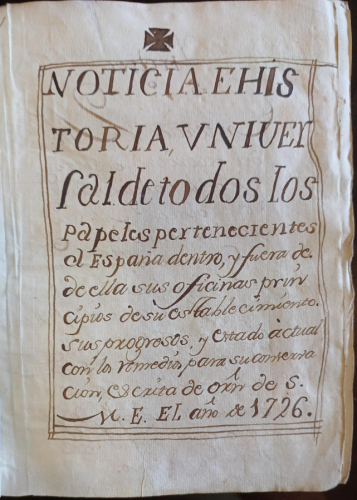 NOTICIA, E HIS
TORIA, VNIUEr
ſal de todos los
papeles pertenecientes
al España dentro, y fuera de
de ella sus oficinas prin
cipios de su establecimiento.
sus progresos, y estado actual
con los remedios para su conserva
cion, escrita de orñ de S.
M. E. EL año de 1726.